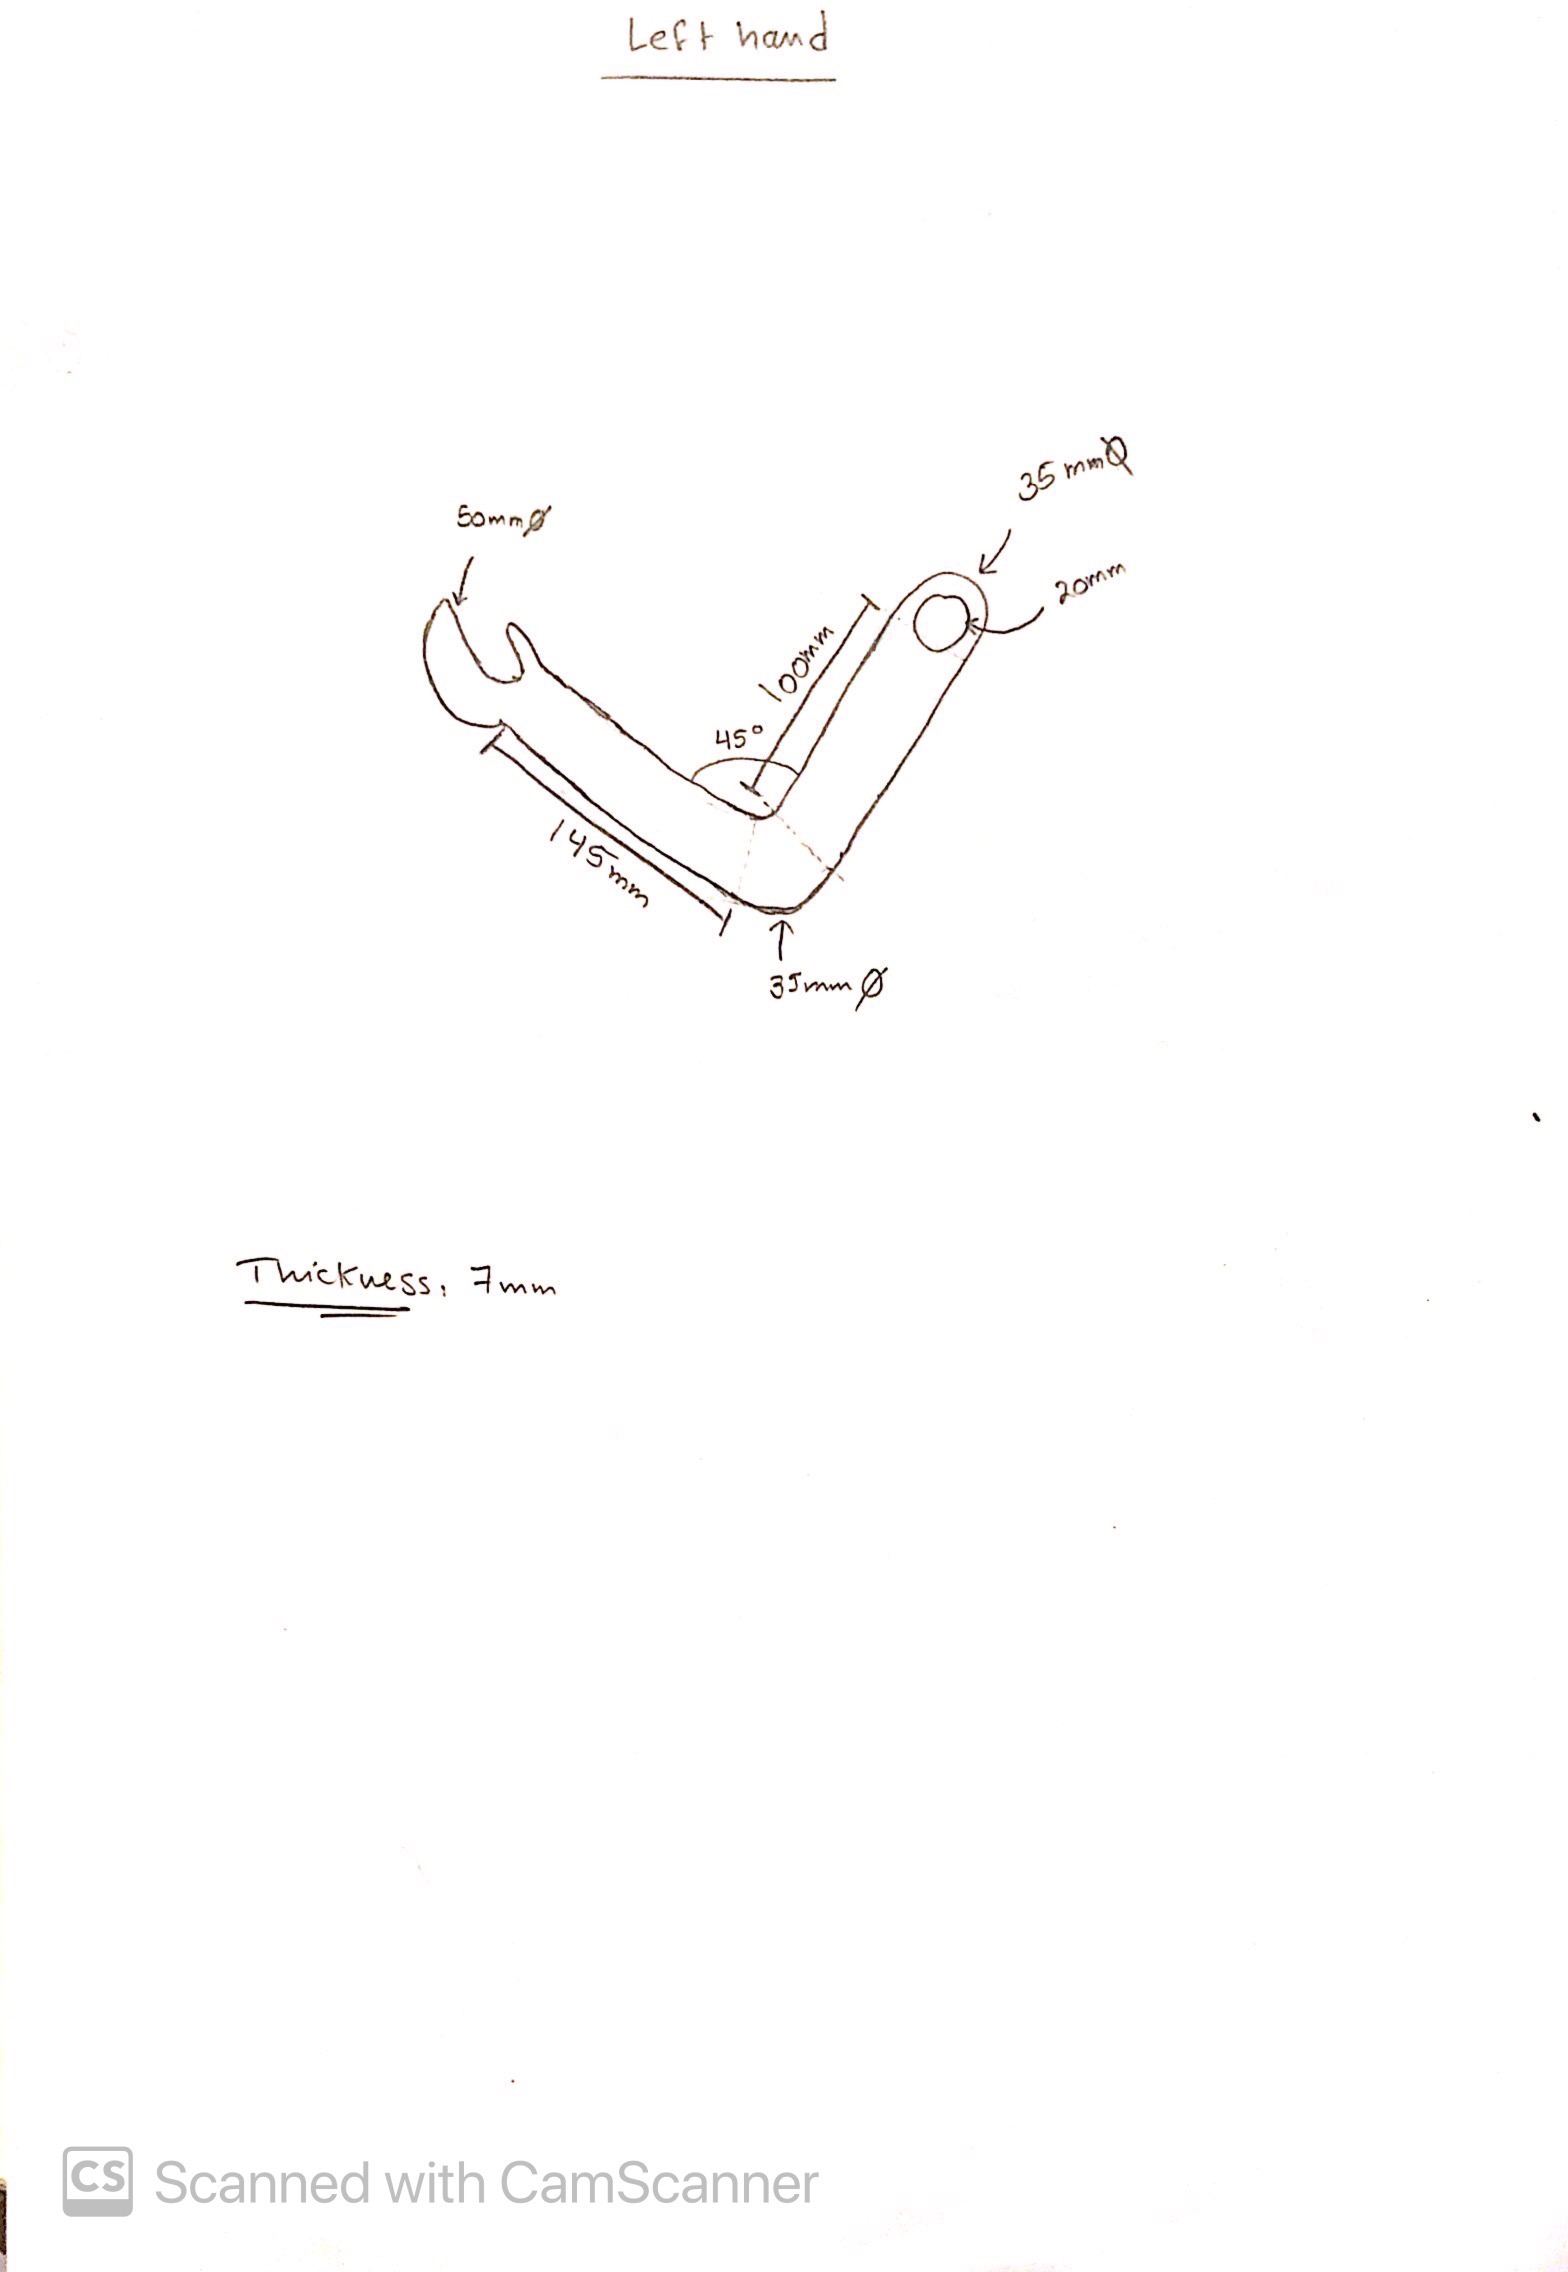 Left hand
35 mmØ
50mmØ
20mm
100mm
45°
145mm
35mmØ
Thickness: 7mm
CS Scanned with CamScanner